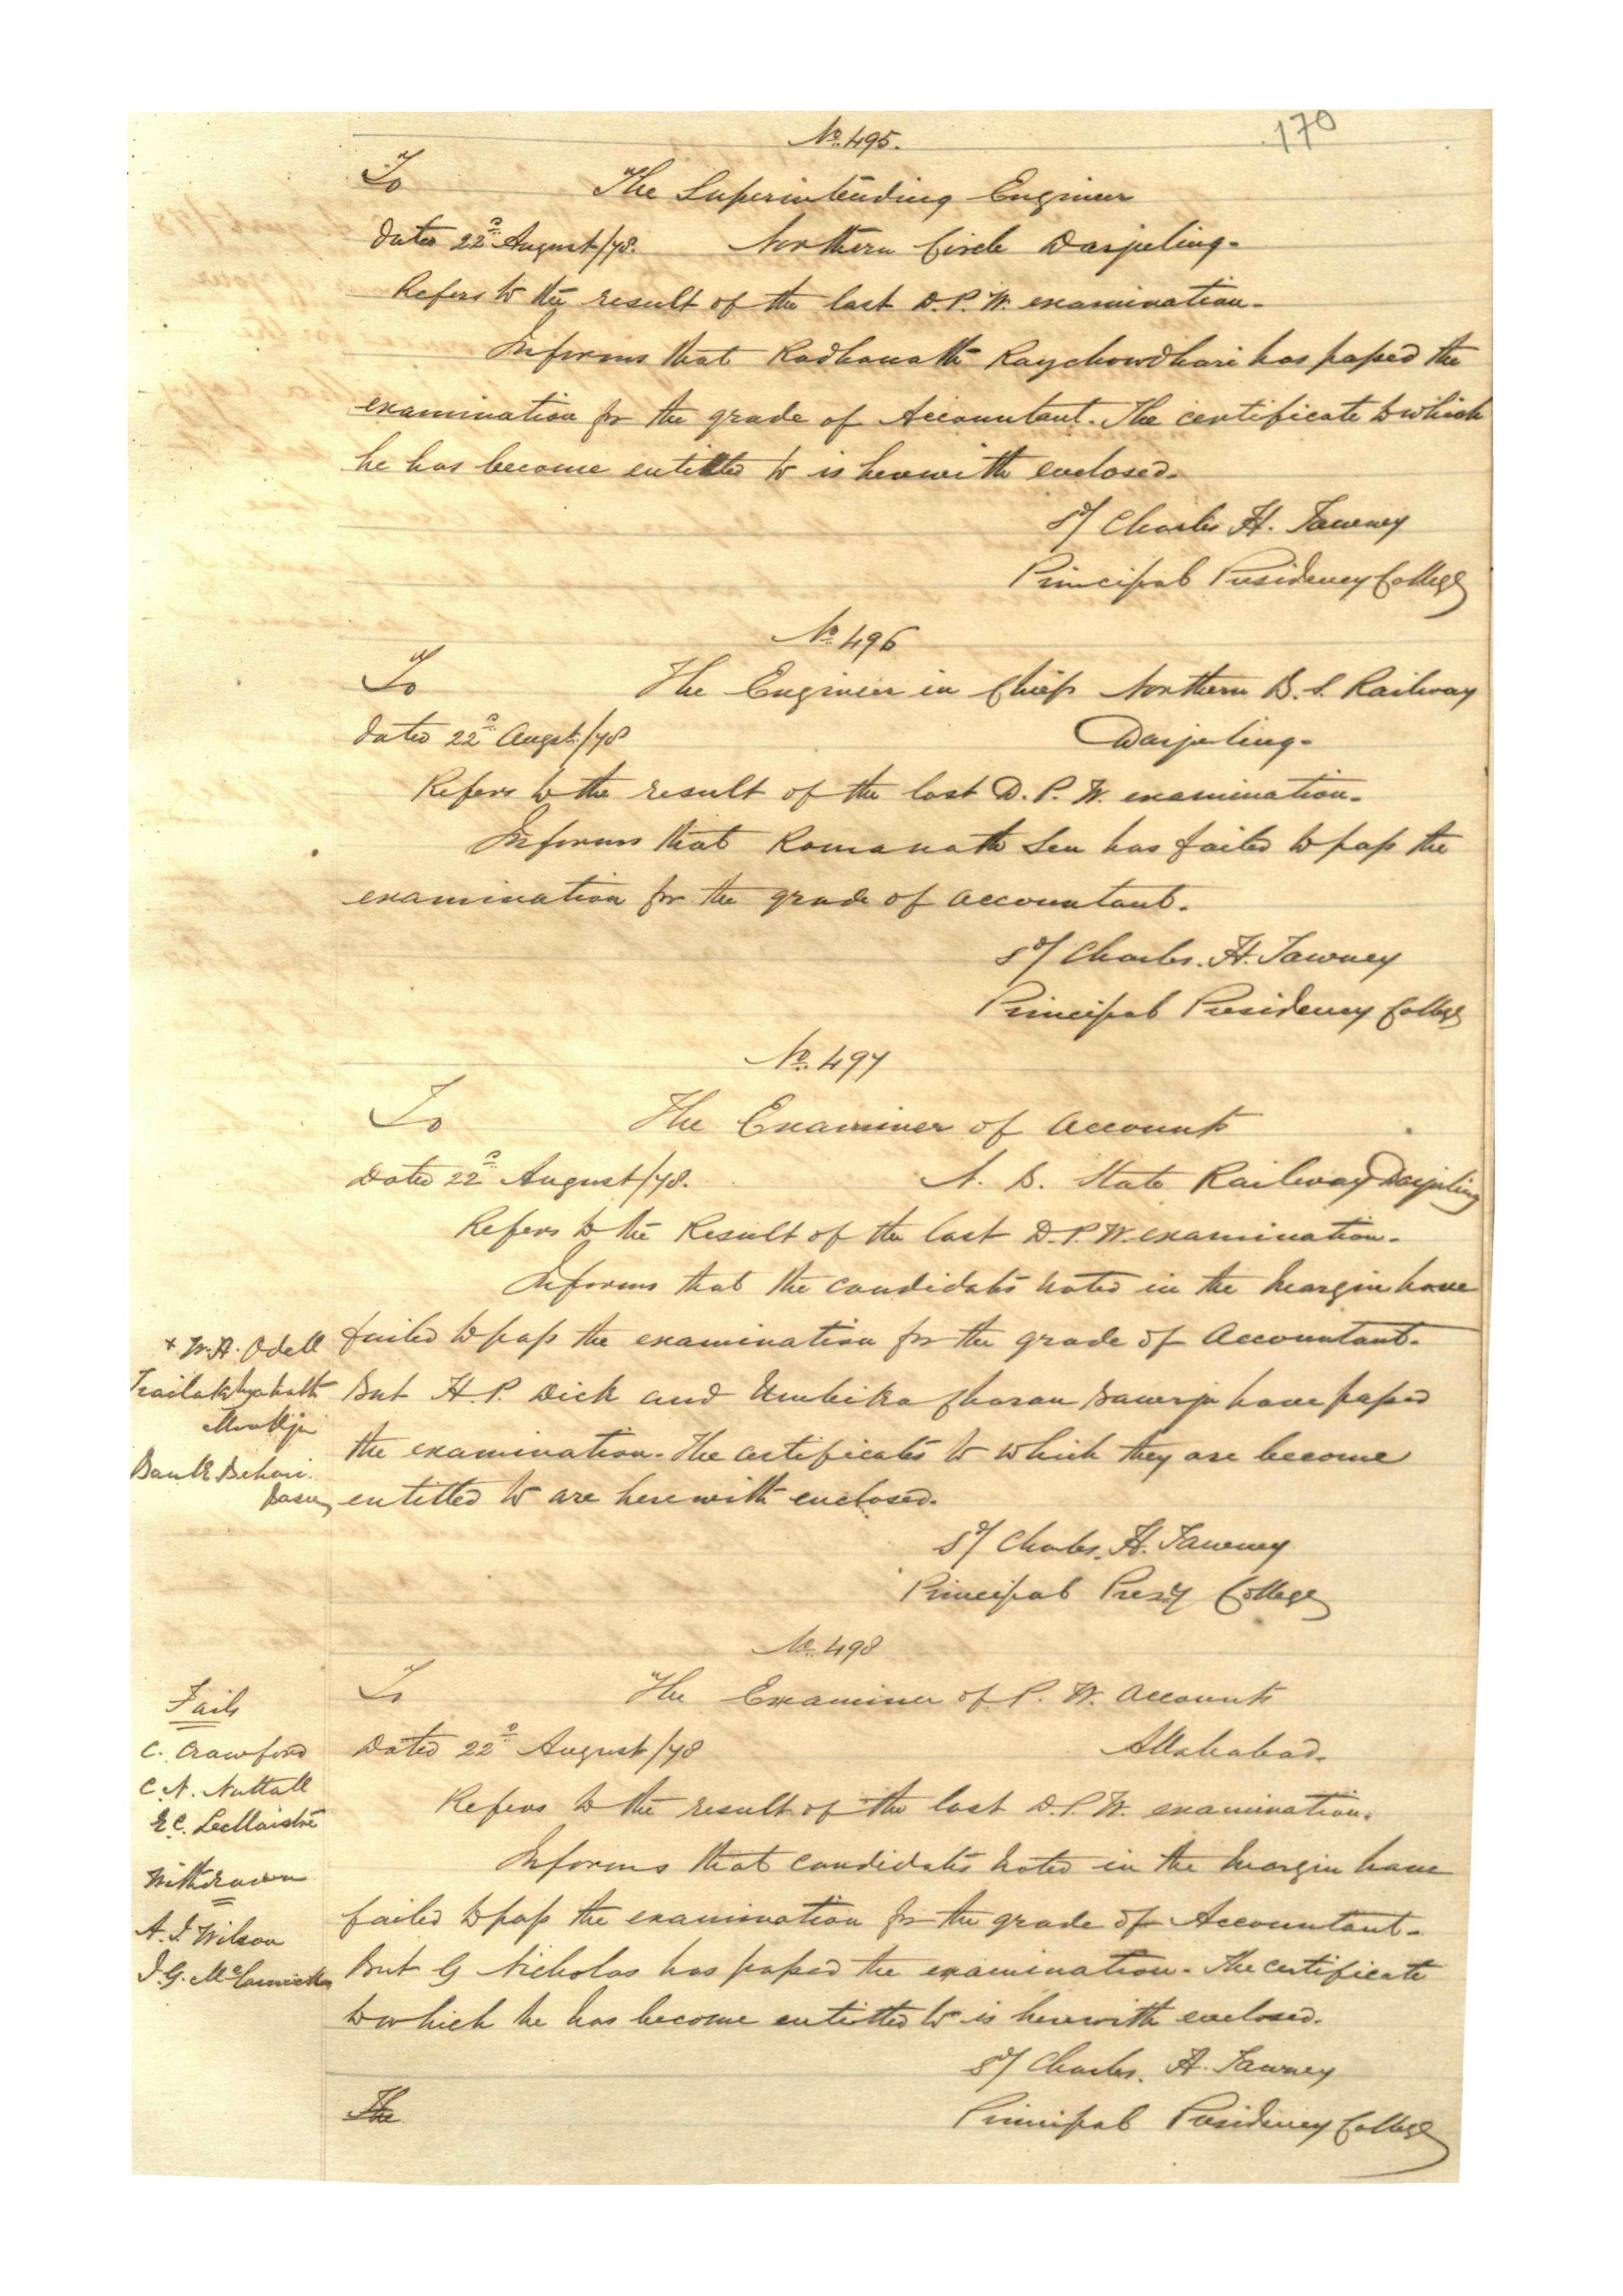 170
No. 495.
To The Superintending Engineer
Dated 22d August/78. Northern Circle Darjeeling.
Refers to the result of the last D. P. W. examination.
Informs that Radhanath Raychowdhari has passed the
examination for the grade of Accountant. The certificate to which
he has become entitled to is herewith enclosed.
Sd/ Charles H. Tawney
Principal Presidency College
No. 496
To The Engineer in Chief Northern B. S. Railway
Dated 22d Augst./78 Darjeeling.
Refers to the result of the last D. P. W. examination.
Informs that Romanath Sen has failed to pass the
examination for the grade of accountant.
Sd/ Charles. H. Tawney
Principal Presidency College
No. 497
To The Examiner of Accounts
Dated 22d August/78. N. B. State Railway Darjeeling
Refers to the Result of the last D. P. W. examination.
Informs that the candidates noted in the margin have
+ W. H. Odell failed to pass the examination for the grade of Accountant.
Trailakhyanath But H. P. Dick and Umbika Charan Banerjee have passed
Mookerjee
the examination. The certificates to which they are become
Bank Behari
Basu entitled to are herewith enclosed.
Sd/ Charles. H. Tawney
Principal Presy College
No. 498
To The Examiner of P. W. Accounts
Fails
C. Crawford Dated 22d August/78 Allahabad.
C. N. Nuttall
Refers to the result of the last D. P. W. examination.
E. C. LeMaistre
Informs that candidates noted in the margin have
Withdrawn
failed to pass the examination for the grade of Accountant.
A. J Wilson
J. G. But G Nicholas has passed the examination. The certificate
to which he has become entitled to is herewith enclosed.
Sd/ Charles. H. Tawney
The Principal Presidency College